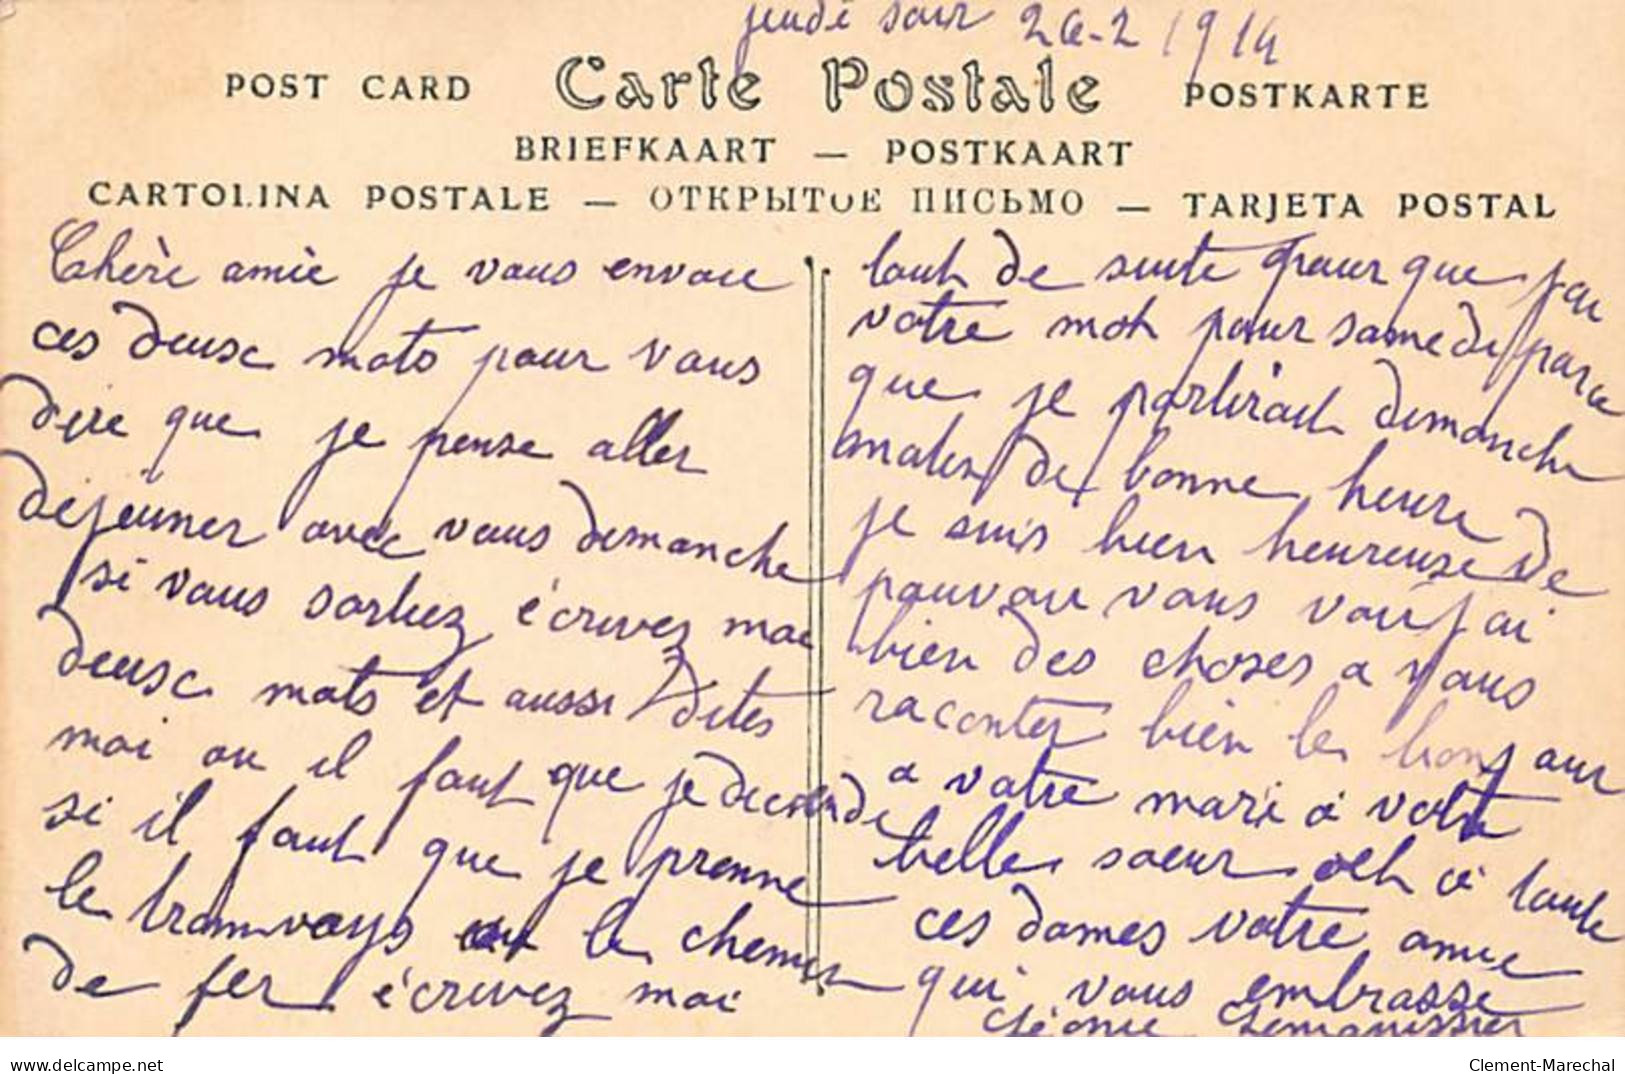 jeudi soir 26-2 1914
POST CARD Carte Postale POSTKARTE
BRIEFKAART — POSTKAART
CARTOLINA POSTALE — ОТКРЫТОЕ ПИСЬМО — TARJETA POSTAL
Chère amie je vous envoie
ces deux mots pour vous
dire que je pense aller
déjeuner avec vous dimanche
si vous sortiez écrivez moi
deux mots et aussi dites
moi ou il faut que je decende
si il faut que je prenne
le tramvays ou le chemin
de fer écrivez moi
tout de suite pour que j'ai
votre mot pour samedi parce
que je partirait dimanche
matin de bonne heure
je suis bien heureuse de
pouvoir vous voir j'ai
bien des choses a vous
raconter bien le bonjour
a votre mari a votre
belle soeur et a toute
ces dames votre amie
qui vous embrasse
Léonie
delcampe.net
Clement-Marechal